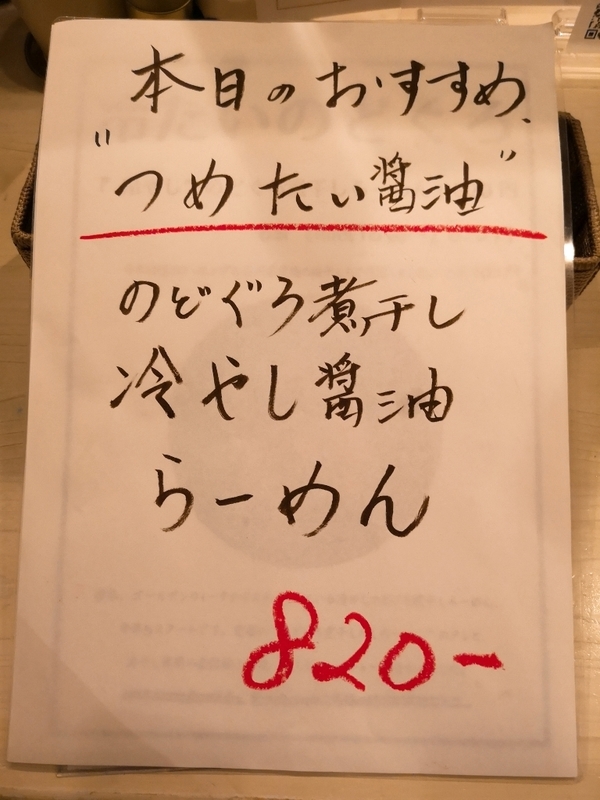 本日のおすすめ、
"つめたい醤油"
のどぐろ煮干し
冷やし醤油
らーめん
820-